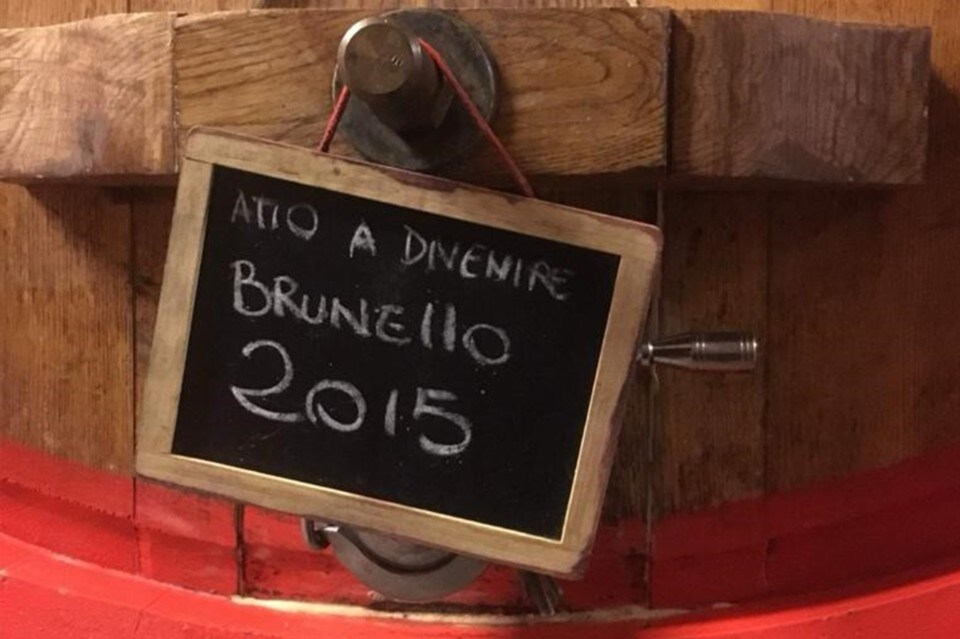 ATIO A DIVENIRE
BRUNEllO
2015